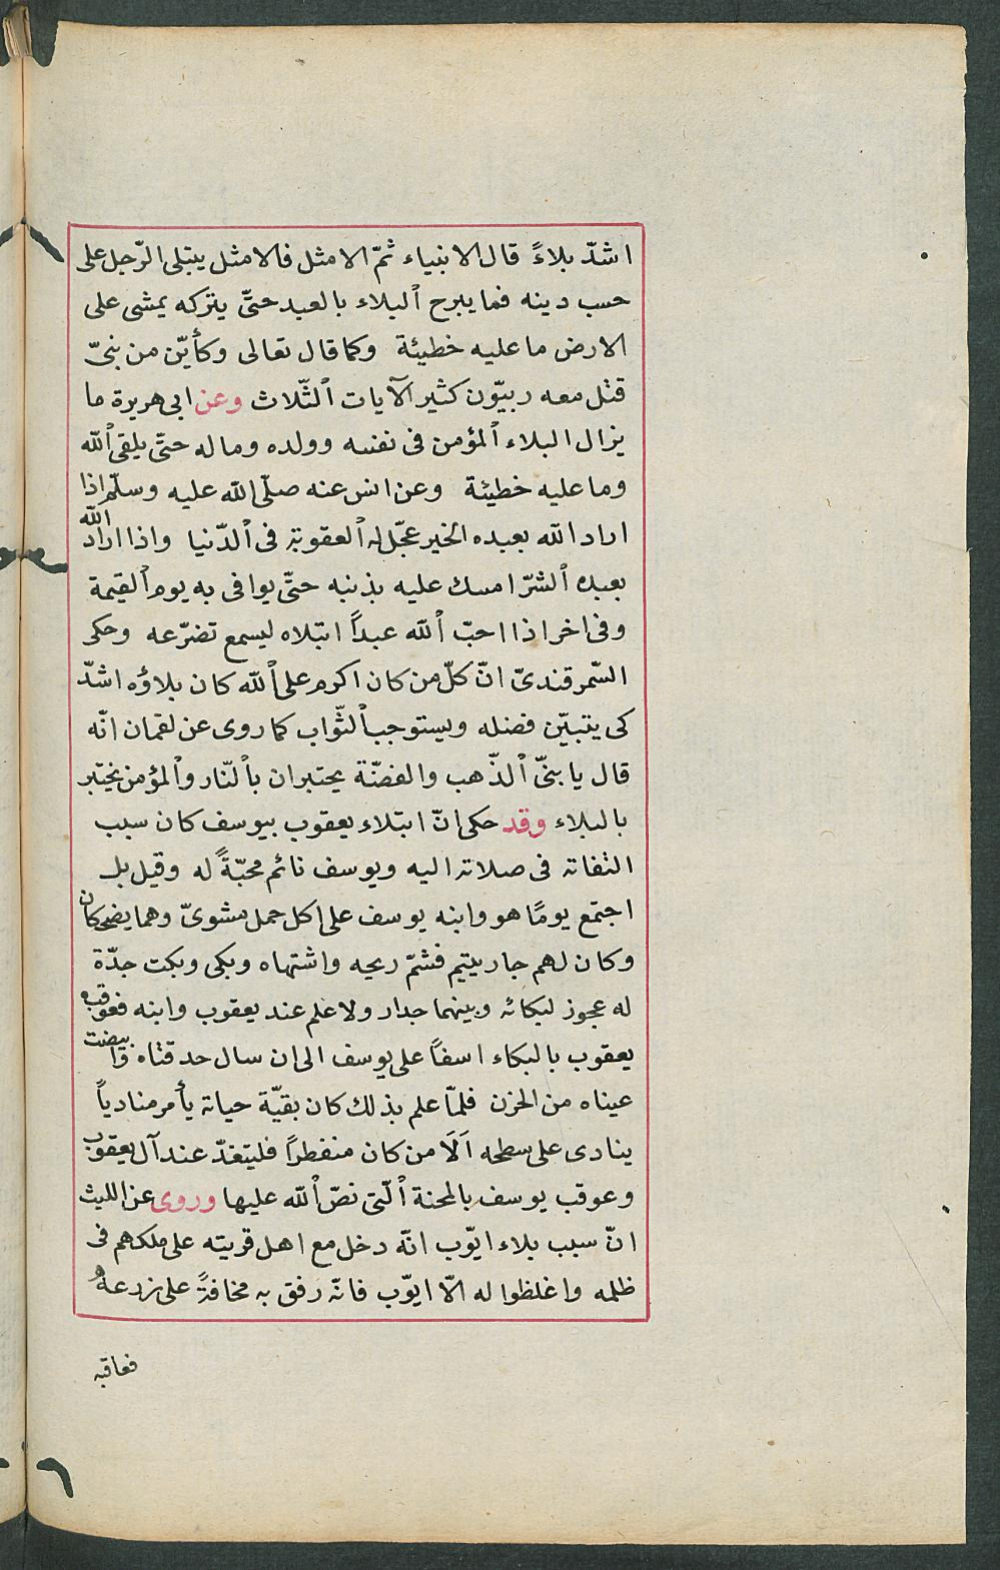 اشدّ بلاءً قال الانبياء ثمّ الامثل فالامثل يبتلى الرّجل على
حسب دينه فما يبرح ٱلبلاء بالعبد حتّى يتركه يمشى على
الارض ما عليه خطيئة وكما قال تعالى وكأيّن من نبىّ
قتل معه ربيّون كثير الآيات ٱلثّلاث وعن ابى هريرة ما
يزال البلاء ٱلمؤمن فى نفسه وولده وماله حتّى يلقى ٱللّه
وما عليه خطيئة وعن انس عنه صلّى اللّه عليه وسلّم اذا
اراد اللّه بعبده الخير عجّل له ٱلعقوبة فى ٱلدّنيا واذا اراد اللّه
بعبده ٱلشّرّ امسك عليه بذنبه حتّى يوافى به يوم ٱلقيمة
وفى اخر اذا احبّ ٱللّه عبداً ابتلاه ليسمع تضرّعه وحكى
السّمرقندىّ انّ كلّ من كان اكرم على ٱللّه كان بلاؤه اشدّ
كى يتبيّن فضله ويستوجب ٱلثّواب كما روى عن لقمان انّه
قال يا بنىّ ٱلذّهب والفضّة يختبران بٱلنّار وٱلمؤمن يختبر
بالبلاء وقد حكى انّ ابتلاء يعقوب بيوسف كان سبب
التفاته فى صلاته اليه ويوسف نائم محبّةً له وقيل بل
اجتمع يومًا هو وابنه يوسف على اكل حمل مشوىّ وهما يضحكان
وكان لهم جار يتيم فشمّ ريحه واشتهاه وبكى وبكت جدّة
له عجوز لبكائه وبينهما جدار ولا علم عند يعقوب وابنه فعوقب
يعقوب بالبكاء اسفاً على يوسف الى ان سال حدقتاه وابيضت
عيناه من الحزن فلمّا علم بذلك كان بقيّة حياته يأمر منادياً
ينادى على سطحه اَلَا من كان منفطراً فليتغدّ عند آل يعقوب
وعوقب يوسف بالمحنة ٱلّتى نصّ ٱللّه عليها وروى عن الليث
انّ سبب بلاء ايّوب انّه دخل مع اهل قريته على ملكهم فى
ظلمه واغلظوا له الّا ايّوب فانّه رفق به مخافةً على زرعهُ
فعاقبه